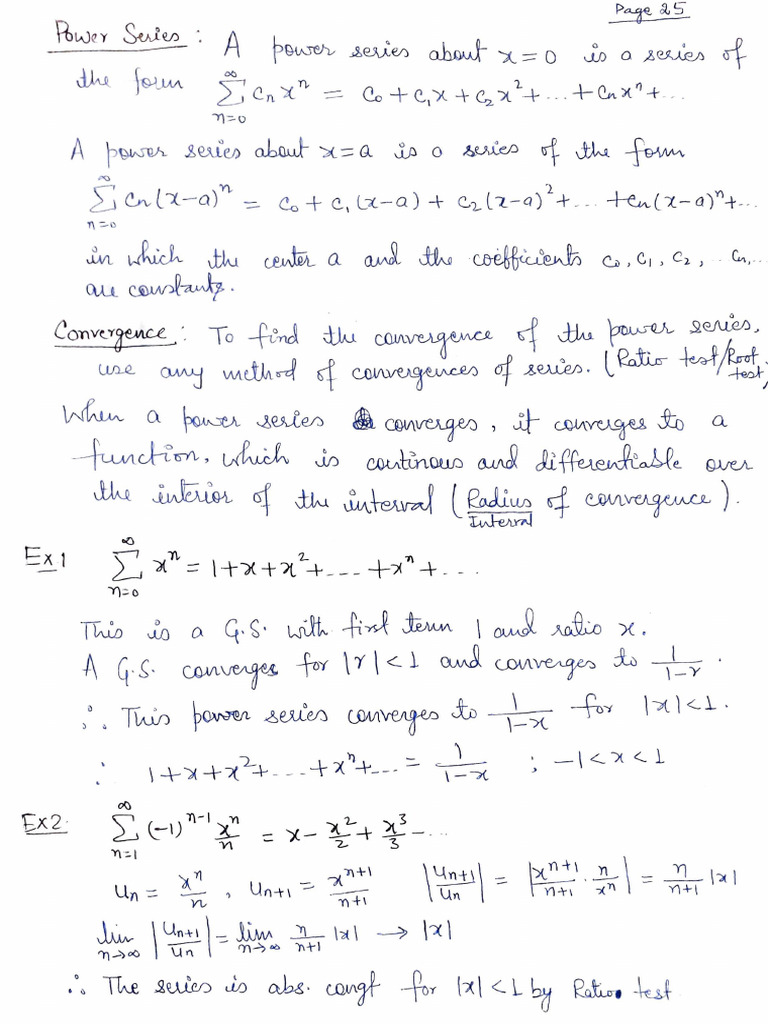 Page 25
Power Series : A power series about x=0 is a series of
the form ∑_{n=0}^{∞} cₙxⁿ = c₀ + c₁x + c₂x² + ... + cₙxⁿ + ...
A power series about x=a is a series of the form
∑_{n=0}^{∞} cₙ(x-a)ⁿ = c₀ + c₁(x-a) + c₂(x-a)² + ... + cₙ(x-a)ⁿ + ...
in which the center a and the coefficients c₀, c₁, c₂, .. cₙ, ...
are constants.
Convergence : To find the convergence of the power series,
use any method of convergences of series. (Ratio test/Root test)
When a power series converges, it converges to a
function, which is continous and differentiable over
the interior of the interval (Radius of convergence).
Interval
Ex.1 ∑_{n=0}^{∞} xⁿ = 1+x+x²+ .... +xⁿ+ ...
This is a G.S. with first term 1 and ratio x.
A G.S. converges for |r|<1 and converges to 1/(1-r).
∴ This power series converges to 1/(1-x) for |x|<1.
∴ 1+x+x²+ .... +xⁿ+... = 1/(1-x) ; -1<x<1
Ex2. ∑_{n=1}^{∞} (-1)ⁿ⁻¹ xⁿ/n = x - x²/2 + x³/3 - ...
uₙ = xⁿ/n , uₙ₊₁ = xⁿ⁺¹/(n+1) |uₙ₊₁/uₙ| = |xⁿ⁺¹/(n+1) · n/xⁿ| = n/(n+1) |x|
lim_{n→∞} |uₙ₊₁/uₙ| = lim_{n→∞} n/(n+1) |x| → |x|
∴ The series is abs. congt for |x|<1 by Ratio test